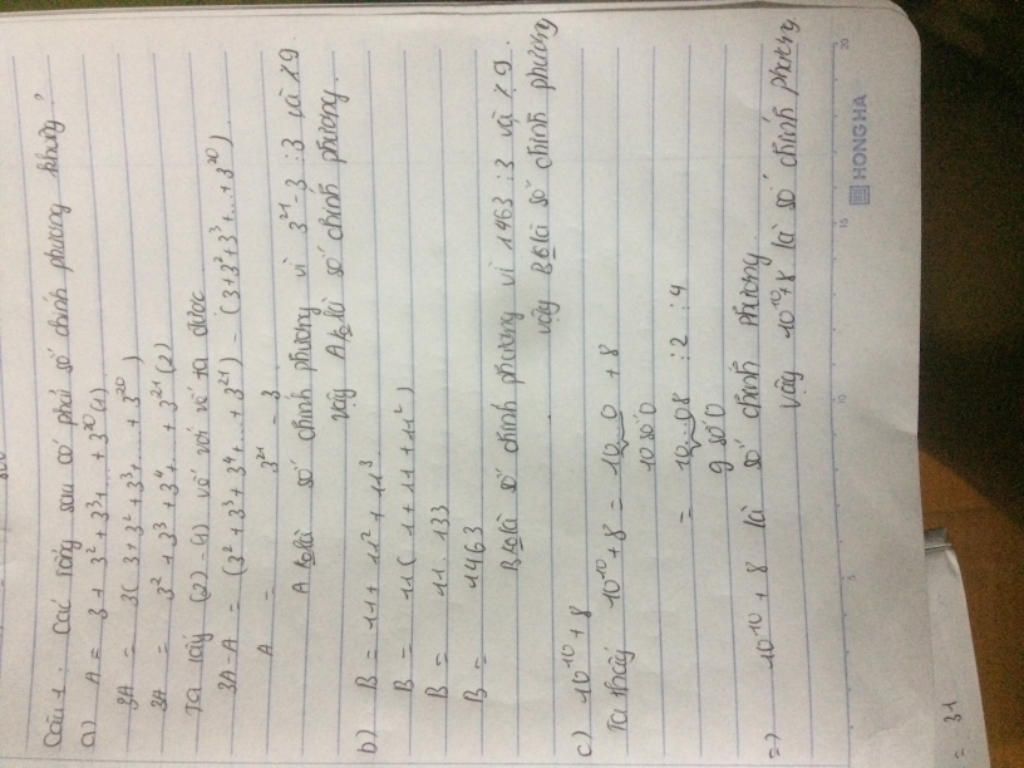 Câu 1 : Các tổng sau có phải số chính phương không ?
a) A = 3 + 3² + 3³ + ... + 3²⁰ (1)
3A = 3( 3 + 3² + 3³ + ... + 3²⁰ )
3A = 3² + 3³ + 3⁴ + ... + 3²¹ (2)
Ta lấy (2) - (1) vế với vế ta được
3A - A = (3² + 3³ + 3⁴ + ... + 3²¹) - (3 + 3² + 3³ + ... + 3²⁰)
A = 3²¹ - 3
A k là số chính phương vì 3²¹ - 3 ⋮ 3 và ⋮̸ 9
vậy A k là số chính phương.
b) B = 11 + 11² + 11³
B = 11( 1 + 11 + 11² )
B = 11 . 133
B = 1463
B k là số chính phương vì 1463 ⋮ 3 và ⋮̸ 9.
vậy B k là số chính phương
c) 10¹⁰ + 8
Ta thấy 10¹⁰ + 8 = 10...0 + 8
10 số 0
= 10...08 ⋮ 2 ⋮ 4
9 số 0
=> 10¹⁰ + 8 là số chính phương
vậy 10¹⁰ + 8 là số chính phương
5 10 15 20
HONG HA
= 31